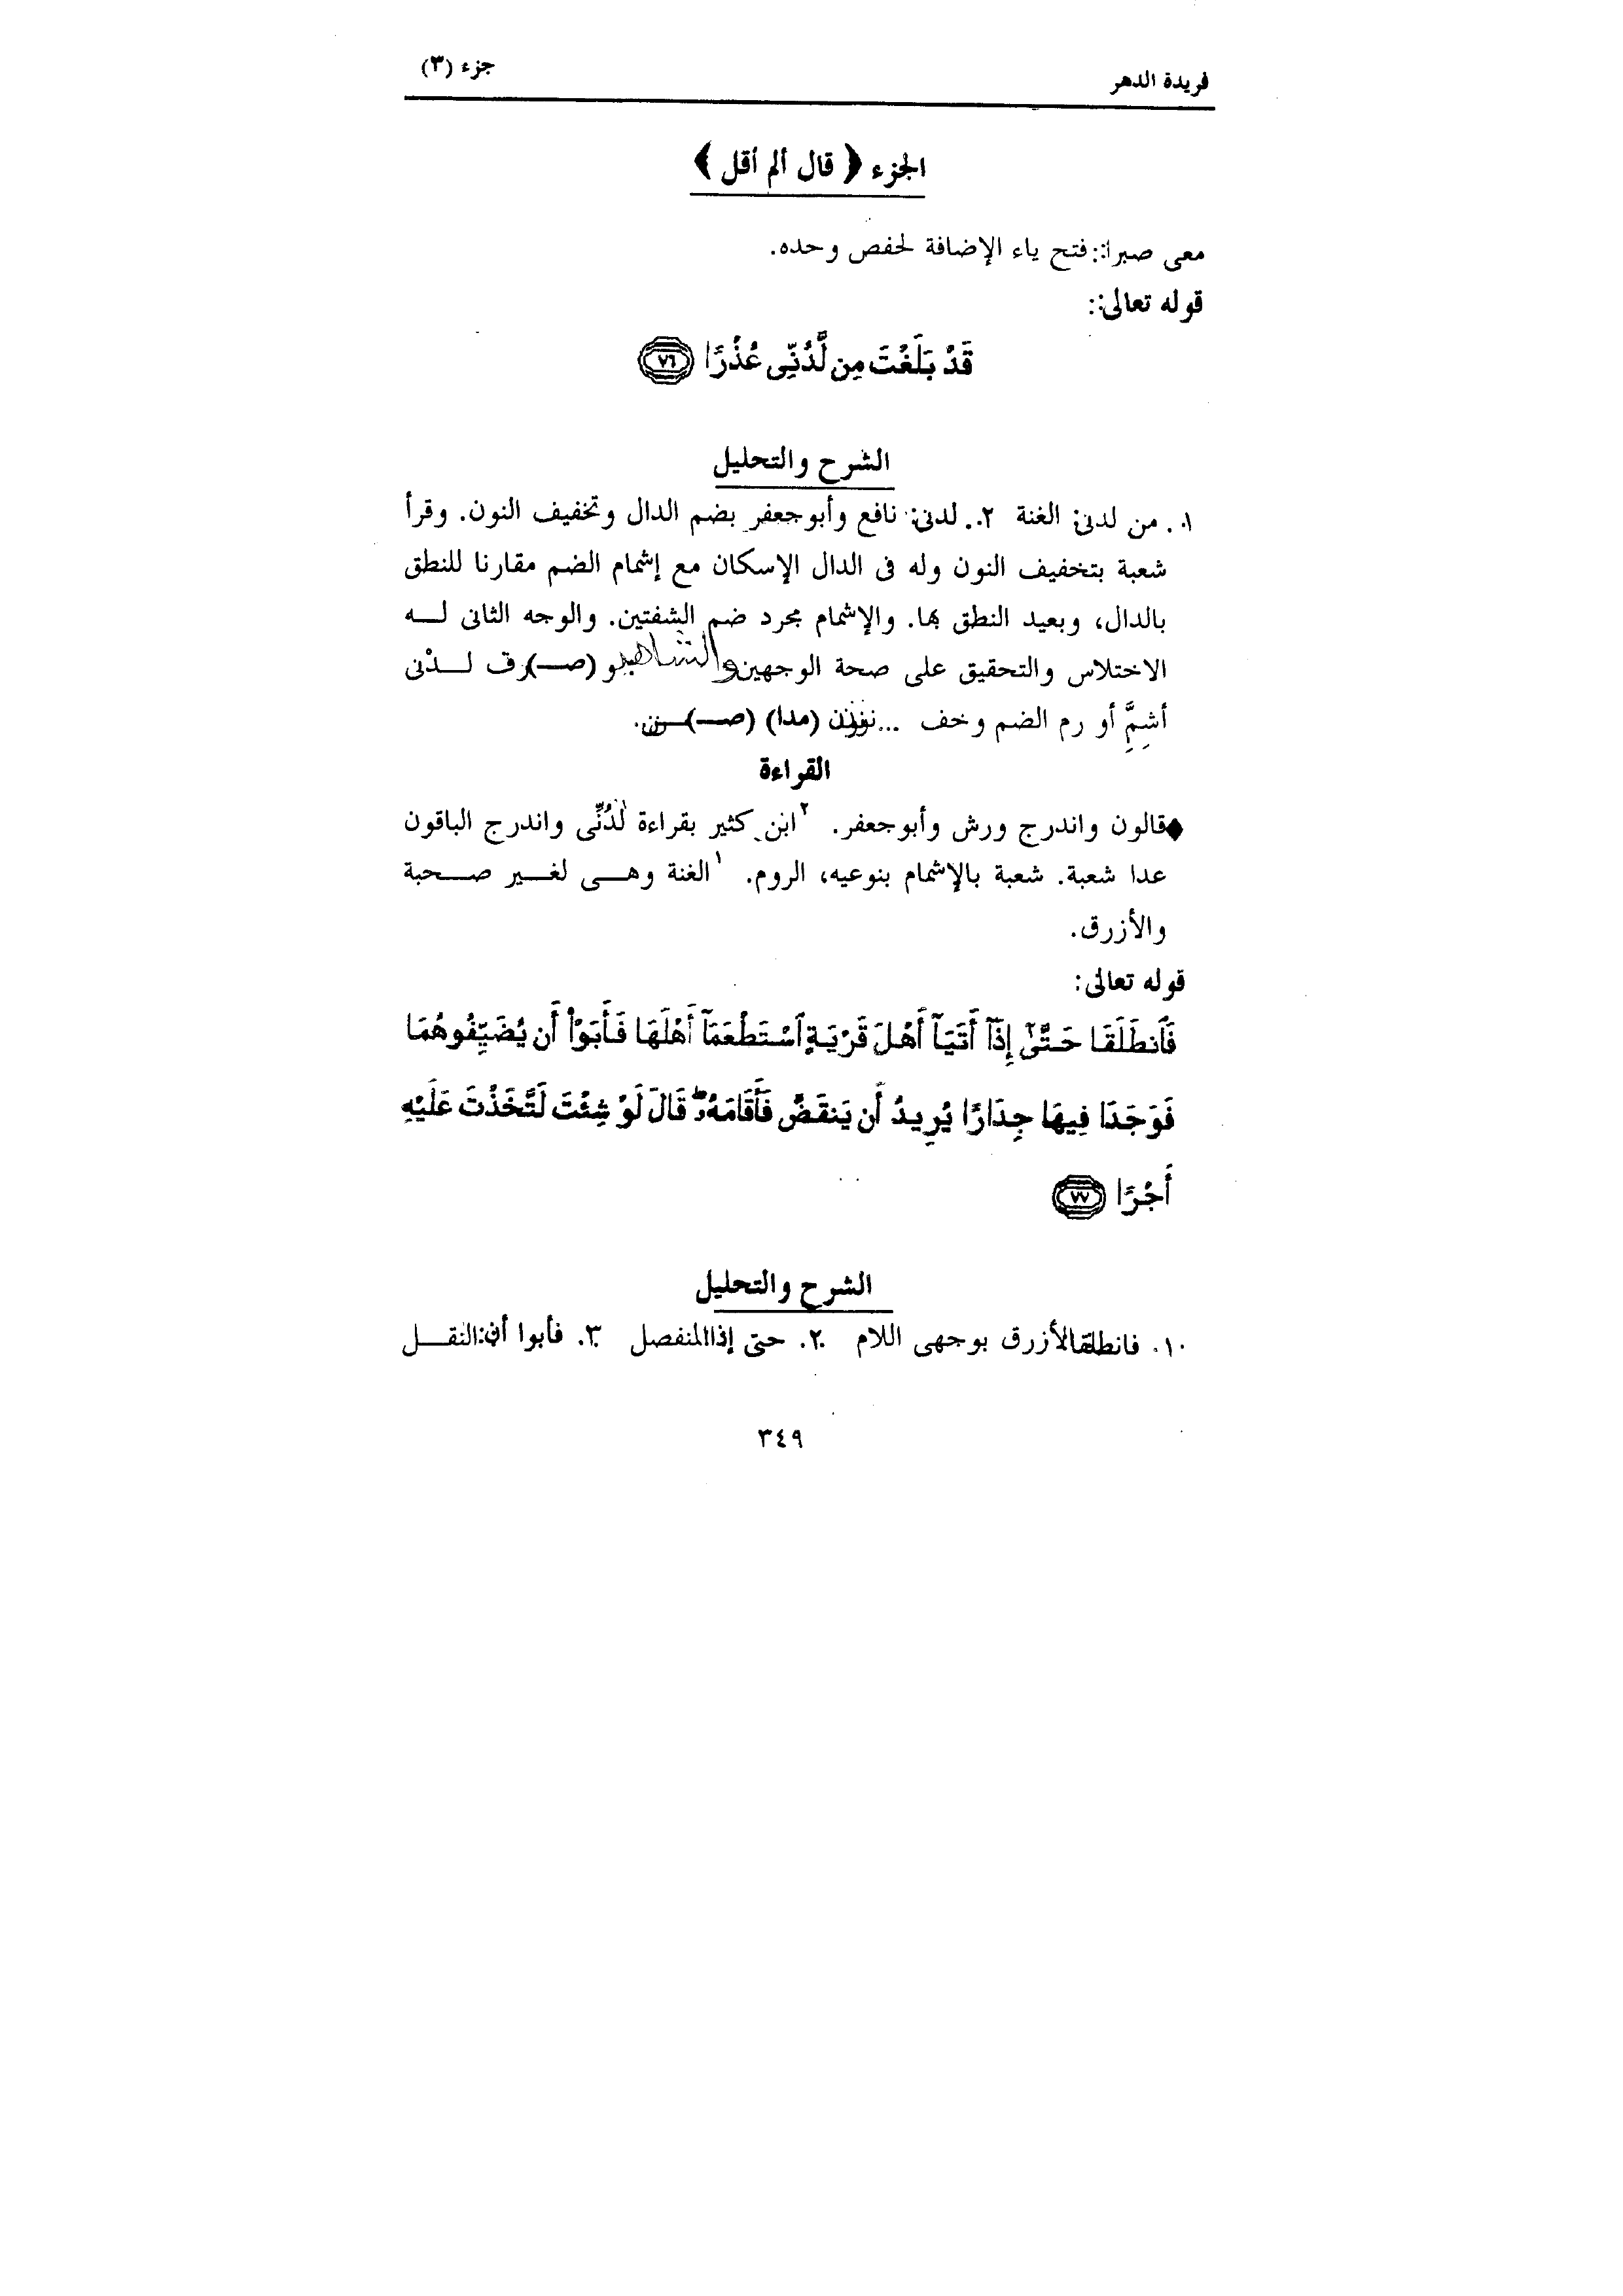 فريدة الدهر
جزء (٣)
الجزء ﴿ قال ألم أقل ﴾
معى صبرا: فتح ياء الإضافة لحفص وحده.
قوله تعالى:
قَدْ بَلَغْتَ مِن لَّدُنِّى عُذْرًا ٧٦
الشرح والتحليل
١. من لدنى: الغنة ٢. لدنى: نافع وأبوجعفر بضم الدال وتخفيف النون. وقرأ
شعبة بتخفيف النون وله فى الدال الإسكان مع إشمام الضم مقارنا للنطق
بالدال، وبعيد النطق بها. والإشمام مجرد ضم الشفتين. والوجه الثانى لـــه
الاختلاس والتحقيق على صحة الوجهين والشاهد و (صـ)رف لـــدْنى
أشِمَّ أو رم الضم وخف ... نون (مدا) (صـ)ـن.
القراءة
♦قالون واندرج ورش وأبوجعفر. ٢ابن كثير بقراءة لَّدُنِّى واندرج الباقون
عدا شعبة. شعبة بالإشمام بنوعيه، الروم. ١الغنة وهـــى لغـــير صـــحبة
والأزرق.
قوله تعالى:
فَٱنطَلَقَا حَتَّىٰٓ إِذَآ أَتَيَآ أَهْلَ قَرْيَةٍ ٱسْتَطْعَمَآ أَهْلَهَا فَأَبَوْا۟ أَن يُضَيِّفُوهُمَا
فَوَجَدَا فِيهَا جِدَارًا يُرِيدُ أَن يَنقَضَّ فَأَقَامَهُۥ ۖ قَالَ لَوْ شِئْتَ لَتَّخَذْتَ عَلَيْهِ
أَجْرًا ٧٧
الشرح والتحليل
١. فانطلقا: الأزرق بوجهى اللام ٢. حتى إذا: المنفصل ٣. فأبوا أن: النقـــل
٣٤٩